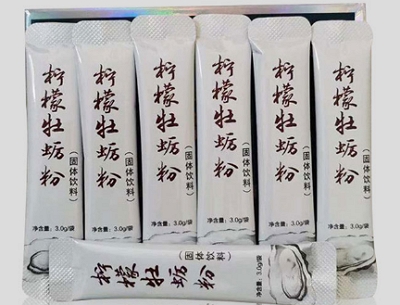 柠檬牡蛎粉
(固体饮料)
净含量：3.0g/袋
柠檬牡蛎粉
(固体饮料)
净含量：3.0g/袋
柠檬牡蛎粉
(固体饮料)
净含量：3.0g/袋
柠檬牡蛎粉
(固体饮料)
净含量：3.0g/袋
柠檬牡蛎粉
(固体饮料)
净含量：3.0g/袋
柠檬牡蛎粉
(固体饮料)
净含量：3.0g/袋
柠檬牡蛎粉
(固体饮料)
净含量：3.0g/袋